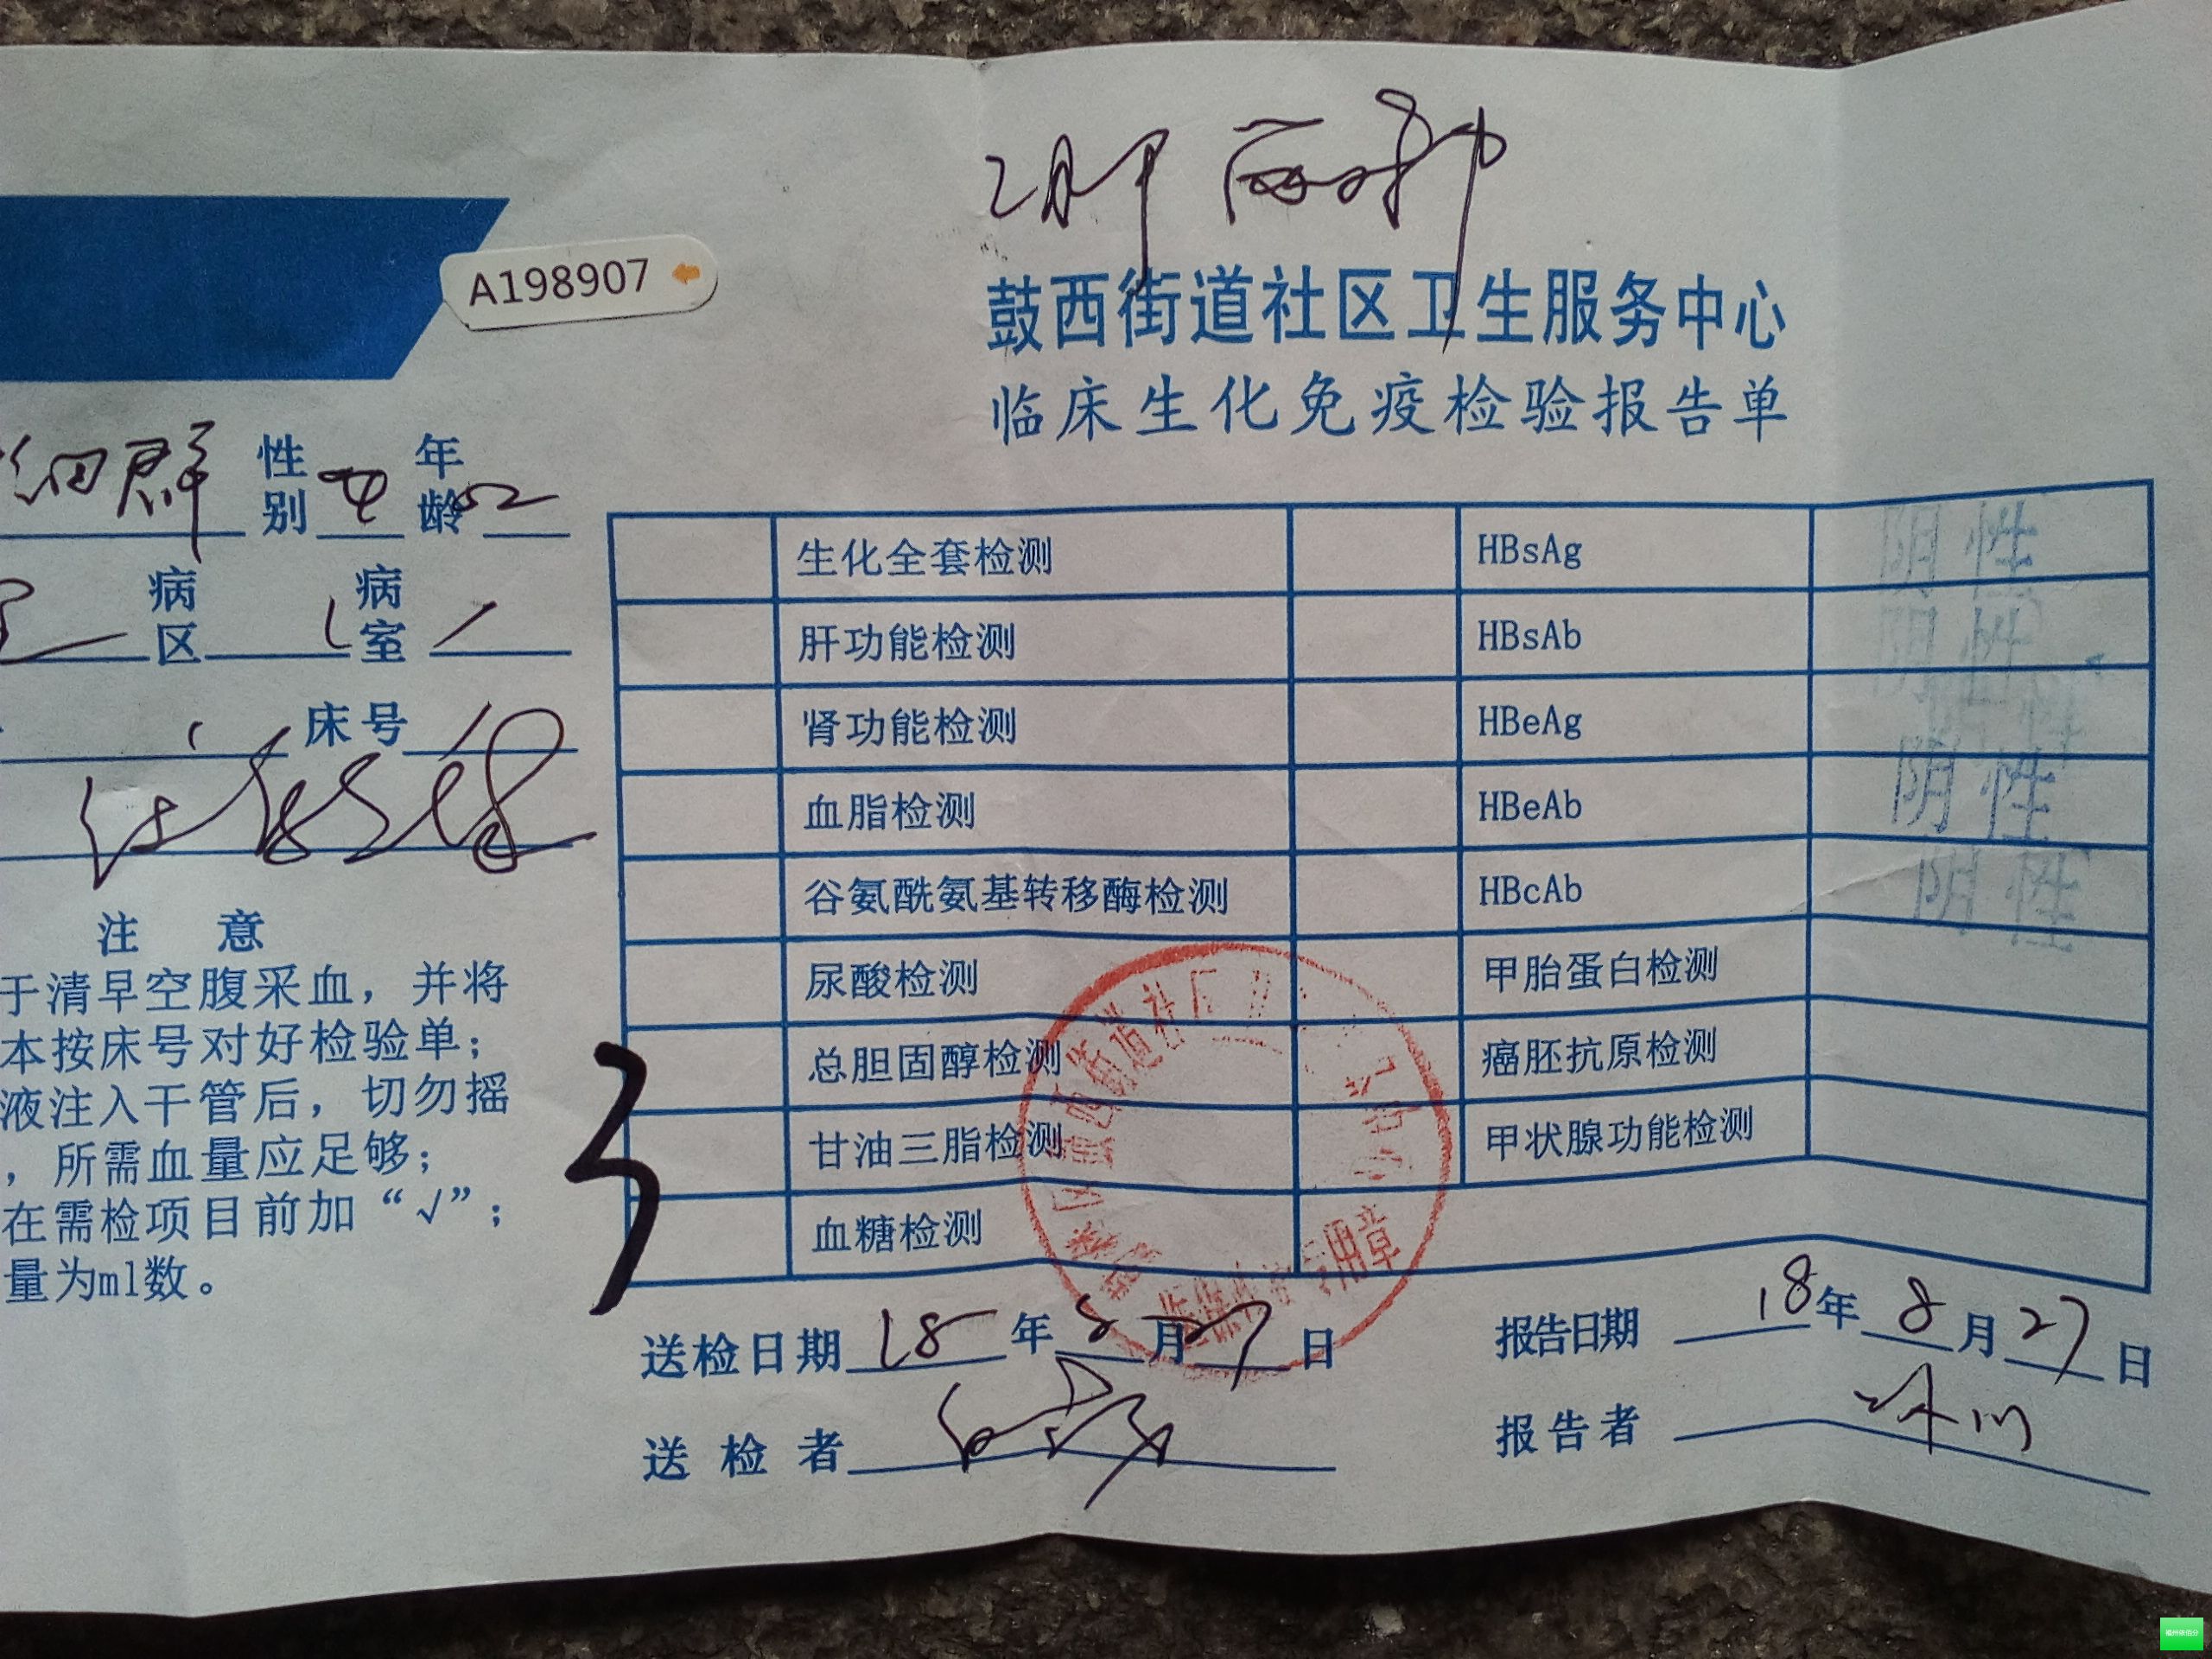 A198907
鼓西街道社区卫生服务中心
临床生化免疫检验报告单
细群 性别 女 年龄 52
病区 病室
床号
注意
于清早空腹采血，并将
本按床号对好检验单；
液注入干管后，切勿摇
，所需血量应足够；
在需检项目前加“√”；
量为ml数。
生化全套检测 HBsAg 阴性
肝功能检测 HBsAb 阴性
肾功能检测 HBeAg 阴性
血脂检测 HBeAb 阴性
谷氨酰氨基转移酶检测 HBcAb 阴性
尿酸检测 甲胎蛋白检测
总胆固醇检测 癌胚抗原检测
甘油三脂检测 甲状腺功能检测
血糖检测
送检日期 18年8月27日 报告日期 18年8月27日
送检者 报告者
专用章